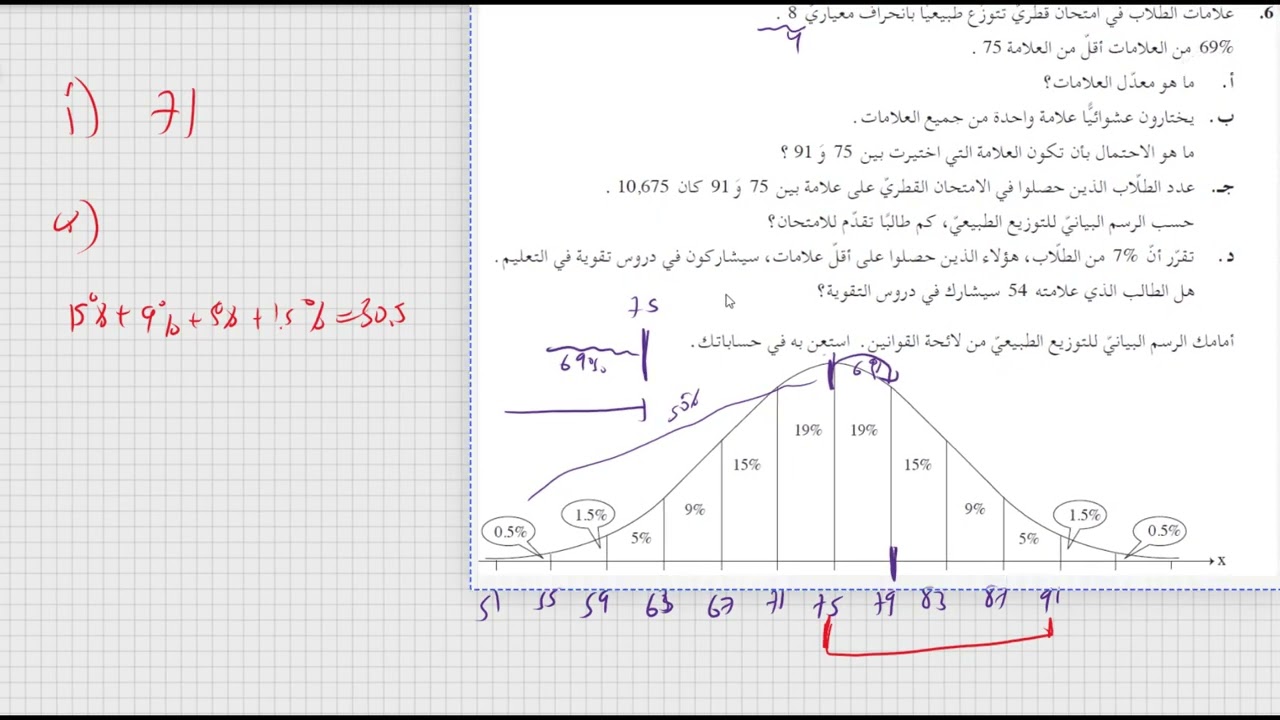 6. علامات الطلّاب في امتحان قطريّ تتوزّع طبيعيًّا بانحراف معياريّ 8 .
4
69% من العلامات أقلّ من العلامة 75 .
أ. ما هو معدّل العلامات؟
ب. يختارون عشوائيًّا علامة واحدة من جميع العلامات.
ما هو الاحتمال بأن تكون العلامة التي اختيرت بين 75 وَ 91 ؟
جـ. عدد الطلّاب الذين حصلوا في الامتحان القطريّ على علامة بين 75 وَ 91 كان 10,675 .
حسب الرسم البيانيّ للتوزيع الطبيعيّ، كم طالبًا تقدّم للامتحان؟
د. تقرّر أنّ 7% من الطلّاب، هؤلاء الذين حصلوا على أقلّ علامات، سيشاركون في دروس تقوية في التعليم.
هل الطالب الذي علامته 54 سيشارك في دروس التقوية؟
أمامك الرسم البيانيّ للتوزيع الطبيعيّ من لائحة القوانين. استعِن به في حساباتك.
71
15% + 9% + 5% + 1.5% = 30.5
75
69%
69%
19% 19%
15% 15%
9% 9%
5% 5%
1.5% 1.5%
0.5% 0.5%
x
51 55 59 63 67 71 75 79 83 87 91